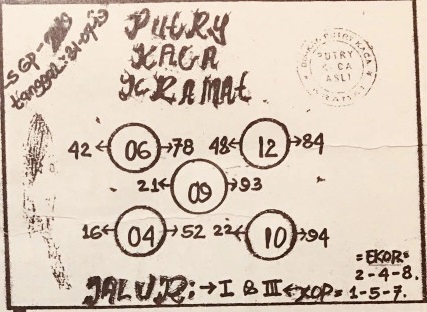 SGP-2019
PUTRY
KACA
KRAMAT
PUTRY
KACA
ASLI
KRAMAT
42 ← 06 → 78
48 ← 12 → 84
21 ← 09 → 93
16 ← 04 → 52
22 ← 10 → 94
= EKOR =
2-4-8.
JALUR: → I & III ← KOP = 1-5-7.